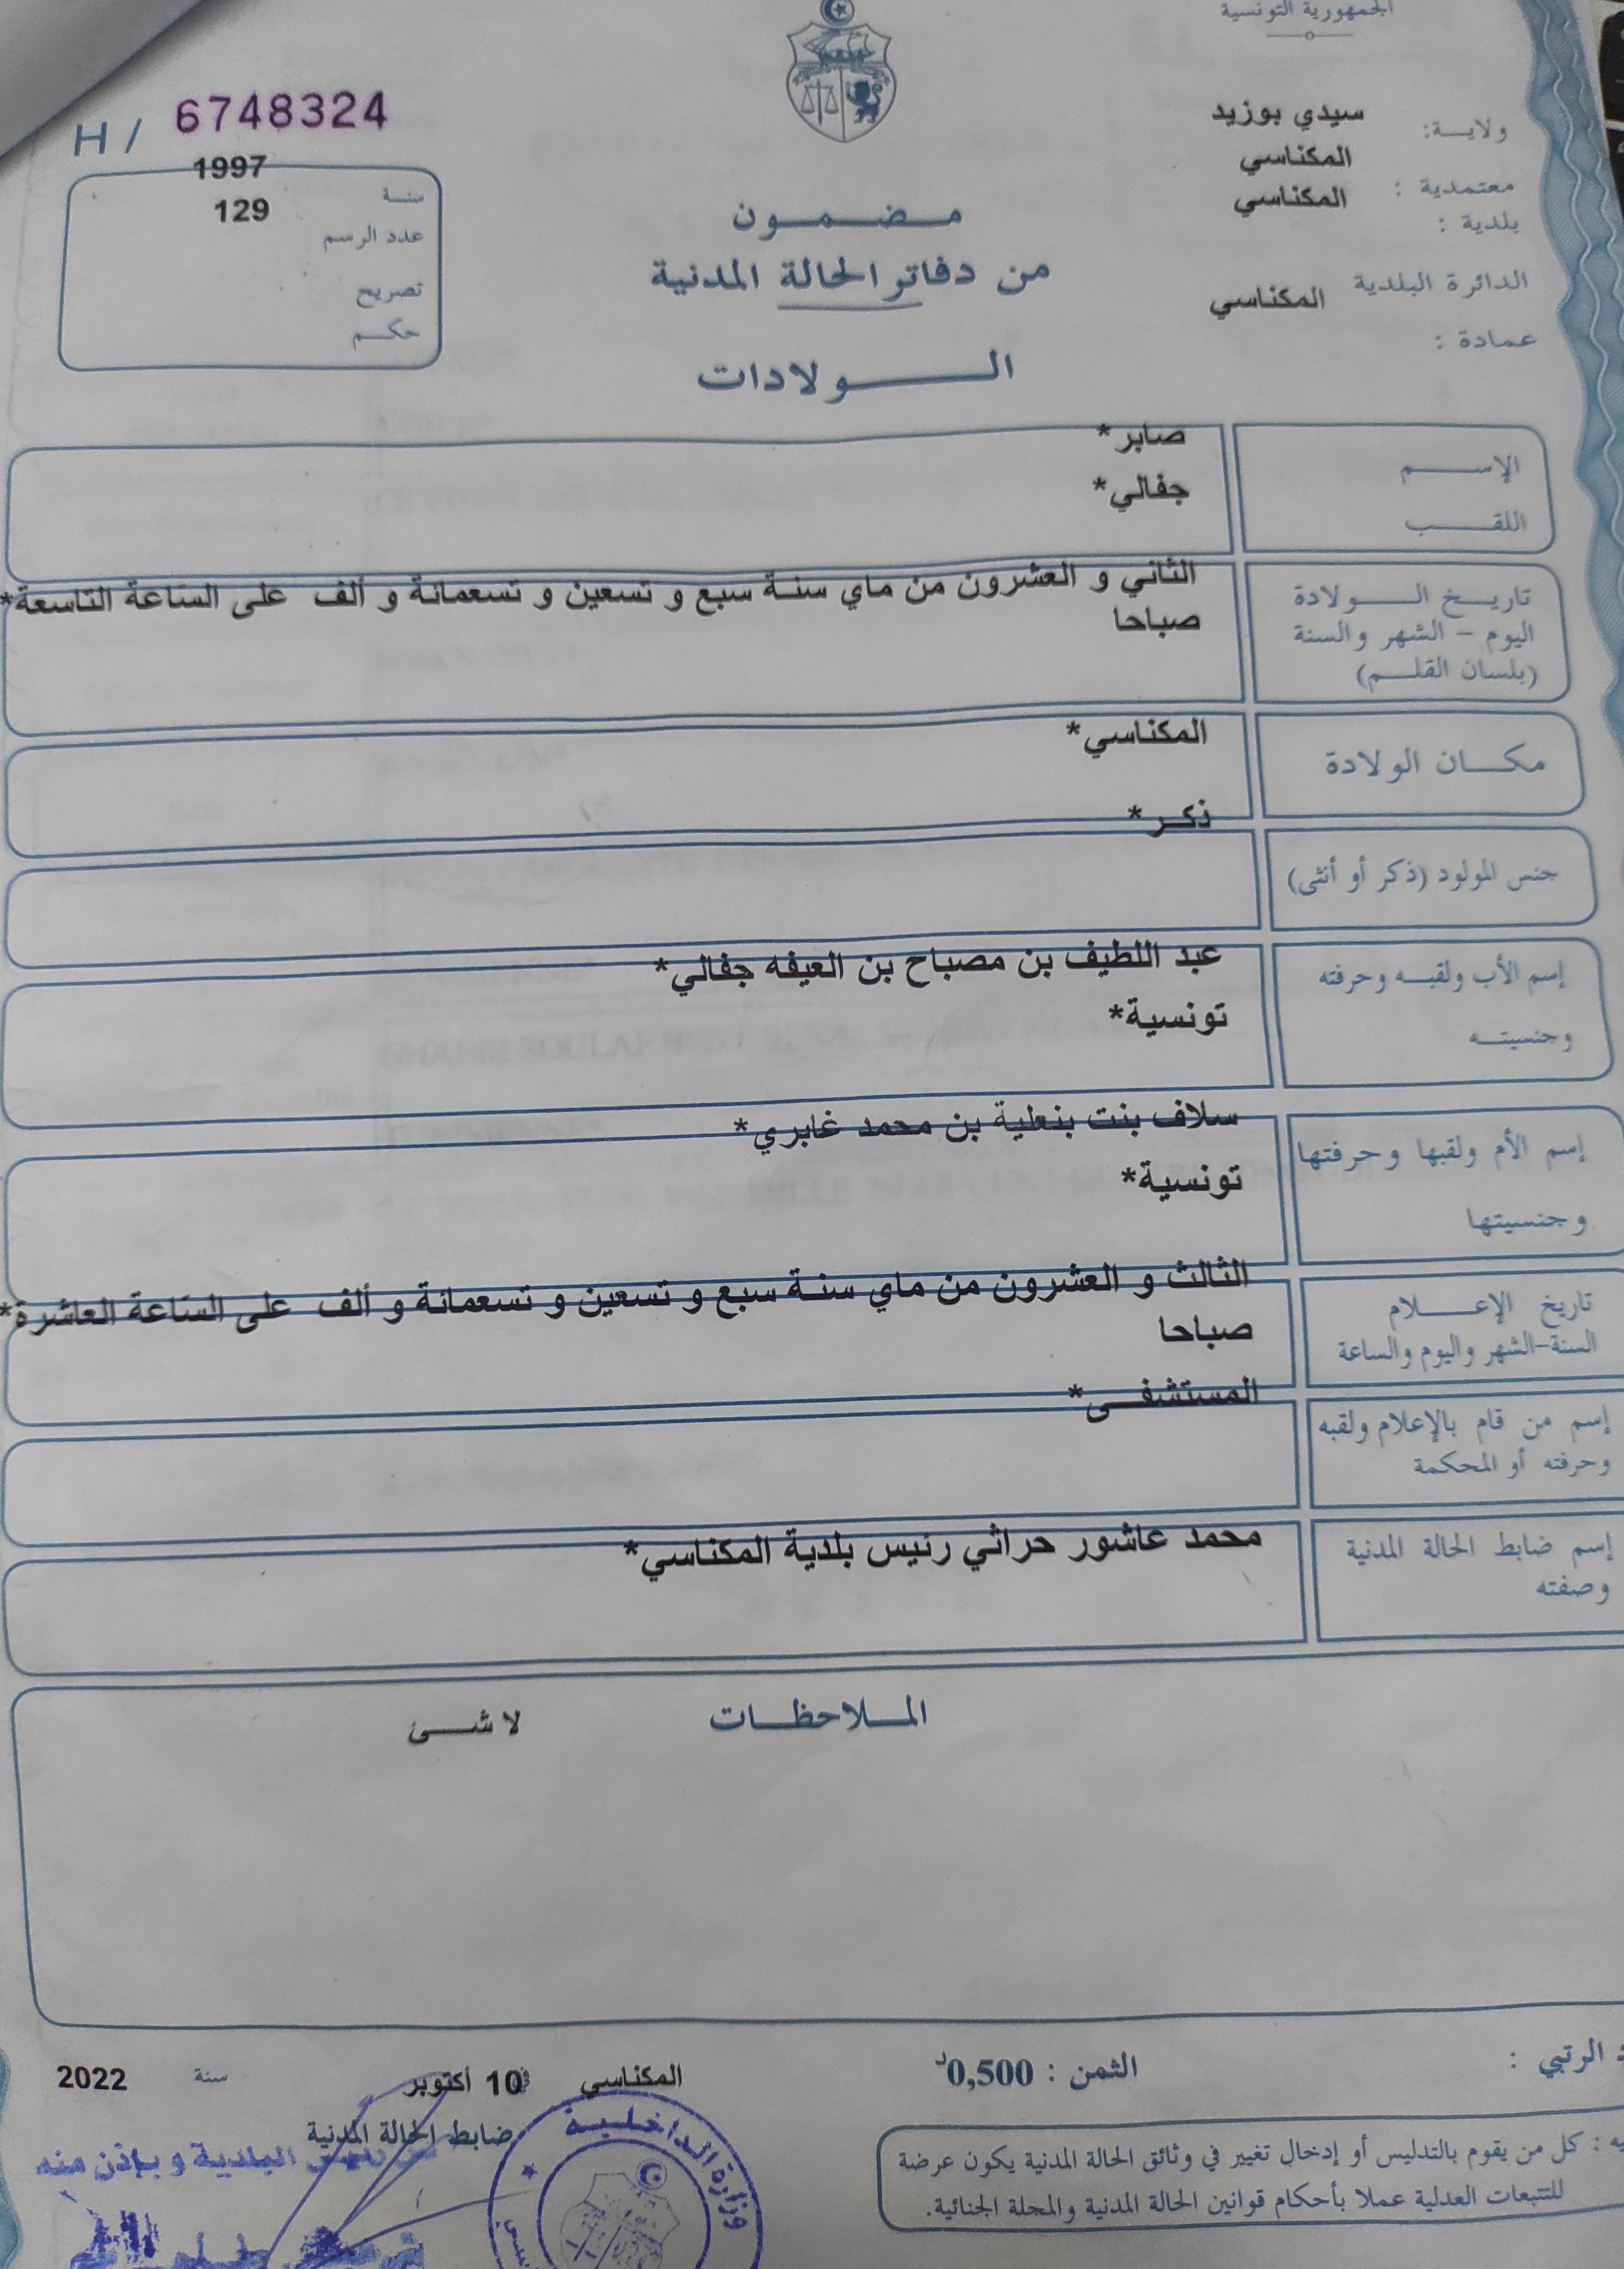 الجمهورية التونسية
ولايـــة: سيدي بوزيد
معتمدية : المكناسي
بلدية : المكناسي
الدائرة البلدية المكناسي
عمادة :
H / 6748324
سنـة 1997
عدد الرسم 129
تصريح
حكـــم
مـــضـــمـــون
من دفاتر الحالة المدنية
الـــــولادات
الإســـــم صابر*
اللقـــــب جفالي*
تاريـــخ الـــــولادة
اليوم - الشهر والسنة
(بلسان القلـــم)
الثاني و العشرون من ماي سنـة سبع و تسعين و تسعمائة و ألف على الساعة التاسعة*
صباحا
مكـــان الولادة المكناسي*
جنس المولود (ذكر أو أنثى) ذكـر*
إسم الأب ولقبـــه وحرفته عبد اللطيف بن مصباح بن العيفه جفالي*
وجنسيتـــه تونسية*
إسم الأم ولقبها وحرفتها سلاف بنت بنعلية بن محمد غابري*
وجنسيتها تونسية*
تاريخ الإعـــــلام
السنة-الشهر واليوم والساعة
الثالث و العشرون من ماي سنـة سبع و تسعين و تسعمائة و ألف على الساعة العاشرة*
صباحا
إسم من قام بالإعلام ولقبه
وحرفته أو المحكمة
المستشفـــى*
إسم ضابط الحالة المدنية
وصفته
محمد عاشور حراثي رئيس بلدية المكناسي*
الملاحظـــات لا شـــئ
الرتبي :
الثمن : 0,500د
المكناسي في 10 أكتوبر سنة 2022
ضابط الحالة المدنية
البلدية و بإذن منه
وزارة الداخلية
: كل من يقوم بالتدليس أو إدخال تغيير في وثائق الحالة المدنية يكون عرضة
للتتبعات العدلية عملا بأحكام قوانين الحالة المدنية والمجلة الجنائية.